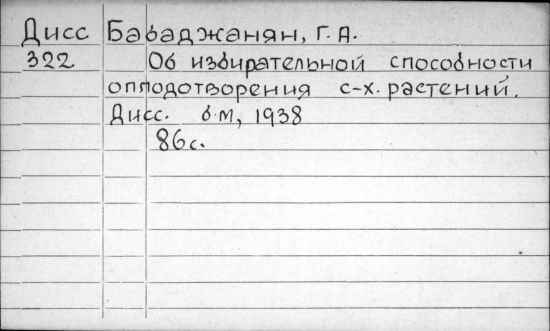 Дисс Бабаджанян, Г.А.
322 Об избирательной способности
оплодотворения с-х. растений.
Дисс. б.м, 1938
86с.